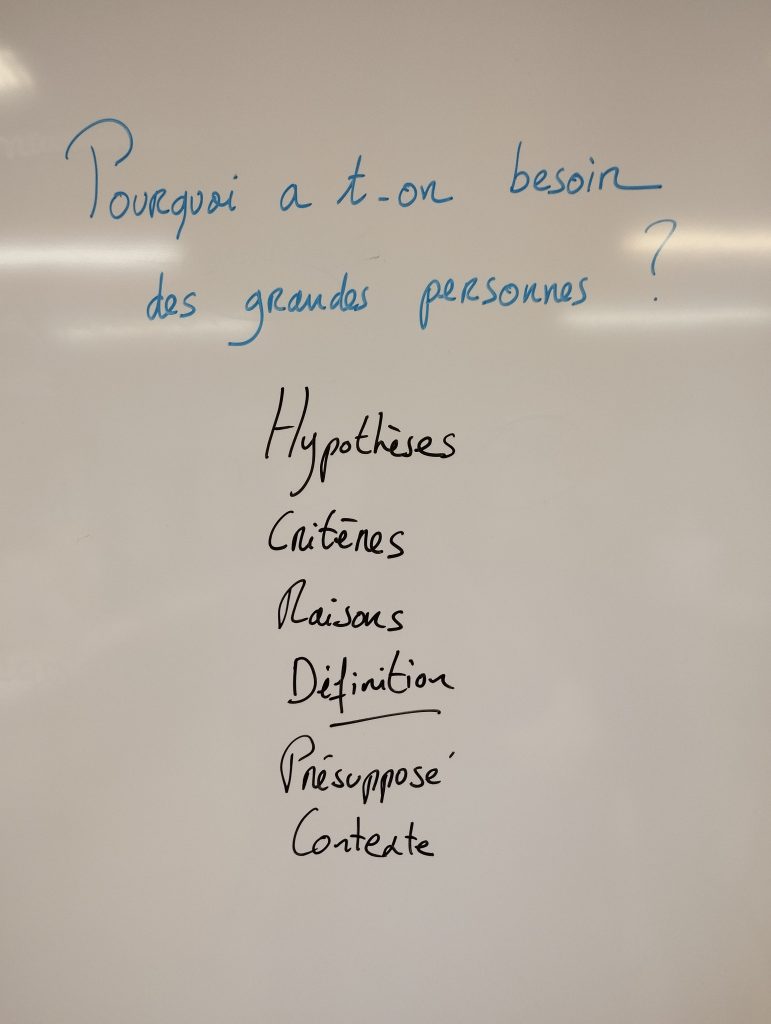 Pourquoi a t-on besoin
des grandes personnes ?
Hypothèses
Critères
Raisons
Définition
Présupposé
Contexte